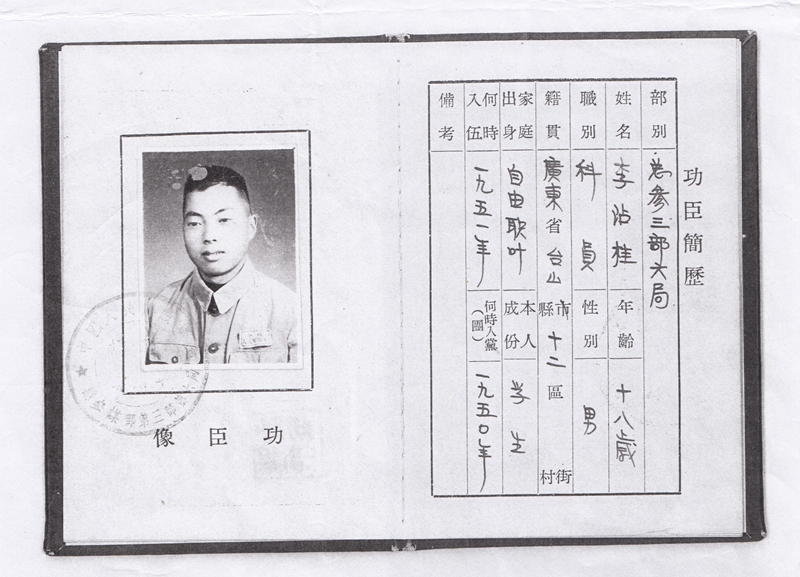 功臣簡歷
部別 总參三部六局
姓名 李沾桂 年齡 十八歲
職別 科員 性別 男
籍貫 廣東省台山市縣十二區街村
家庭出身 自由职叶 本人成份 学生
何時入伍 一九五一年 何時入黨(團) 一九五〇年
備考
功臣像